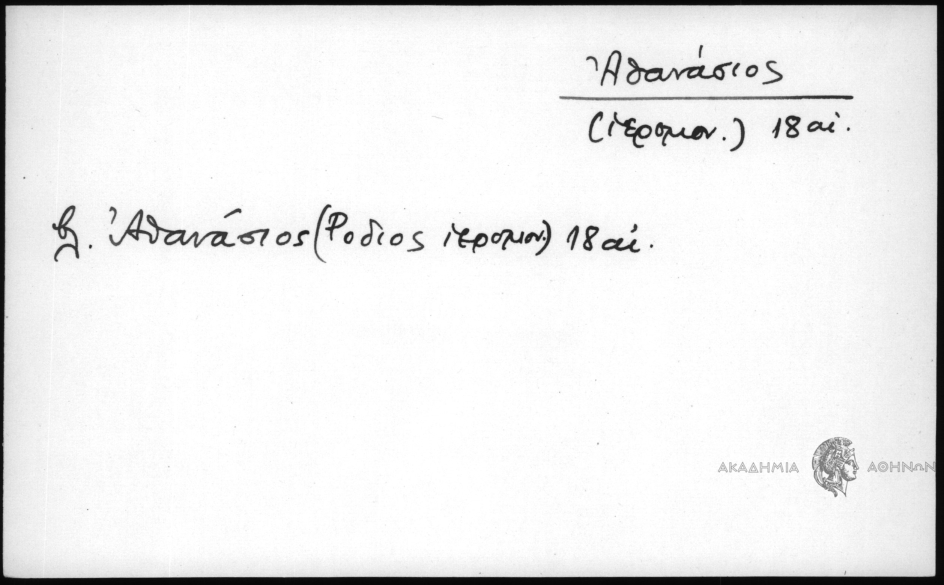 Ἀθανάσιος
(ἱερομον.) 18 αἰ.
βλ. Ἀθανάσιος (Ροδιος ἱερομον.) 18 αἰ.
ΑΚΑΔΗΜΙΑ ΑΘΗΝΩΝ